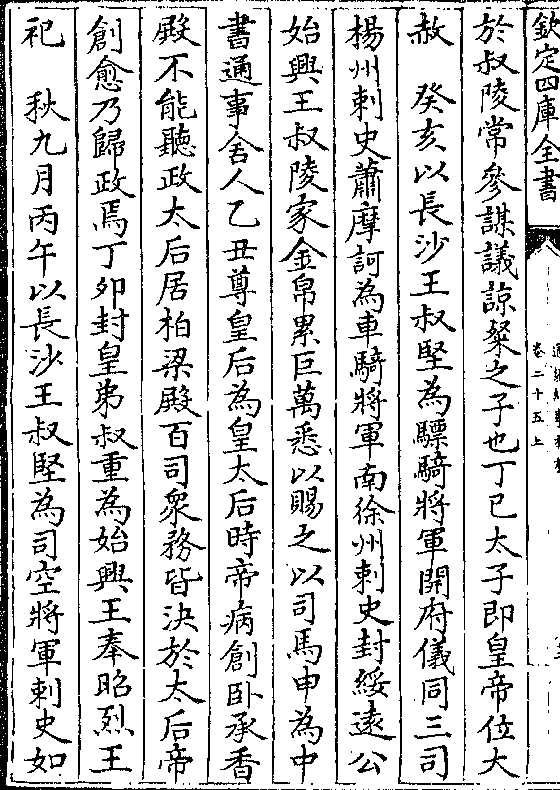 欽定四庫全書
卷二十五上
於叔陵常參謀議諒粲之子也丁巳太子即皇帝位大
赦　癸亥以長沙王叔堅為驃騎將軍開府儀同三司
楊州刺史蕭摩訶為車騎將軍南徐州刺史封綏遠公
始興王叔陵家金帛累巨萬悉以賜之以司馬申為中
書通事舍人乙丑尊皇后為皇太后時帝病創卧承香
殿不能聽政太后居柏梁殿百司衆務皆決於太后帝
創愈乃歸政焉丁卯封皇弟叔重為始興王奉昭烈王
祀　秋九月丙午以長沙王叔堅為司空將軍刺史如